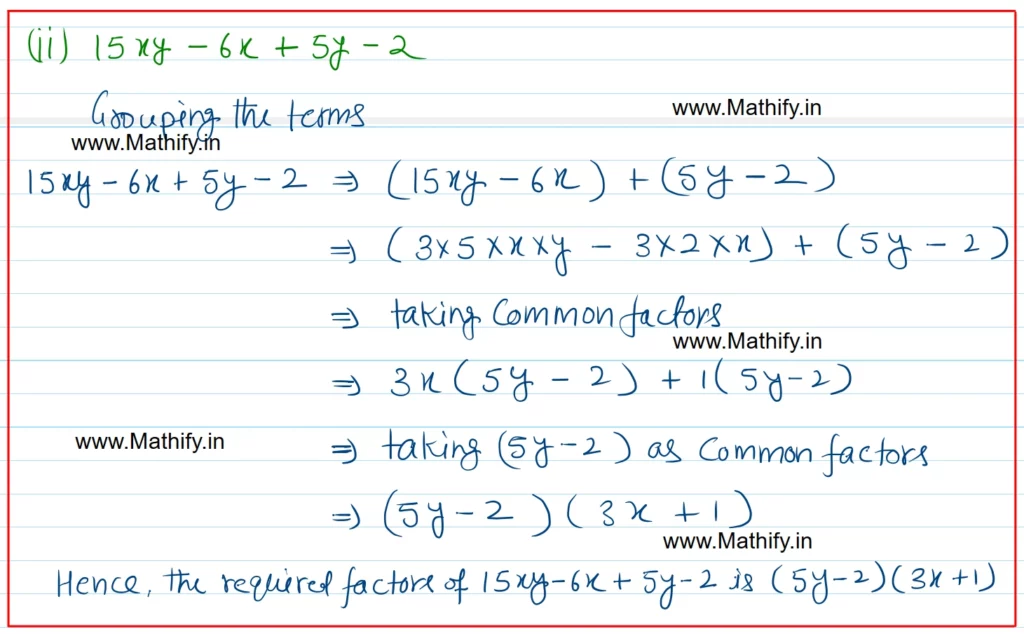 (ii) 15xy - 6x + 5y - 2
Grouping the terms
www.Mathify.in
www.Mathify.in
15xy - 6x + 5y - 2 ⇒ (15xy - 6x) + (5y - 2)
⇒ (3×5×x×y - 3×2×x) + (5y - 2)
⇒ taking Common factors
www.Mathify.in
⇒ 3x(5y - 2) + 1(5y-2)
www.Mathify.in
⇒ taking (5y-2) as Common factors
⇒ (5y-2)(3x+1)
www.Mathify.in
Hence, the required factors of 15xy-6x+5y-2 is (5y-2)(3x+1)